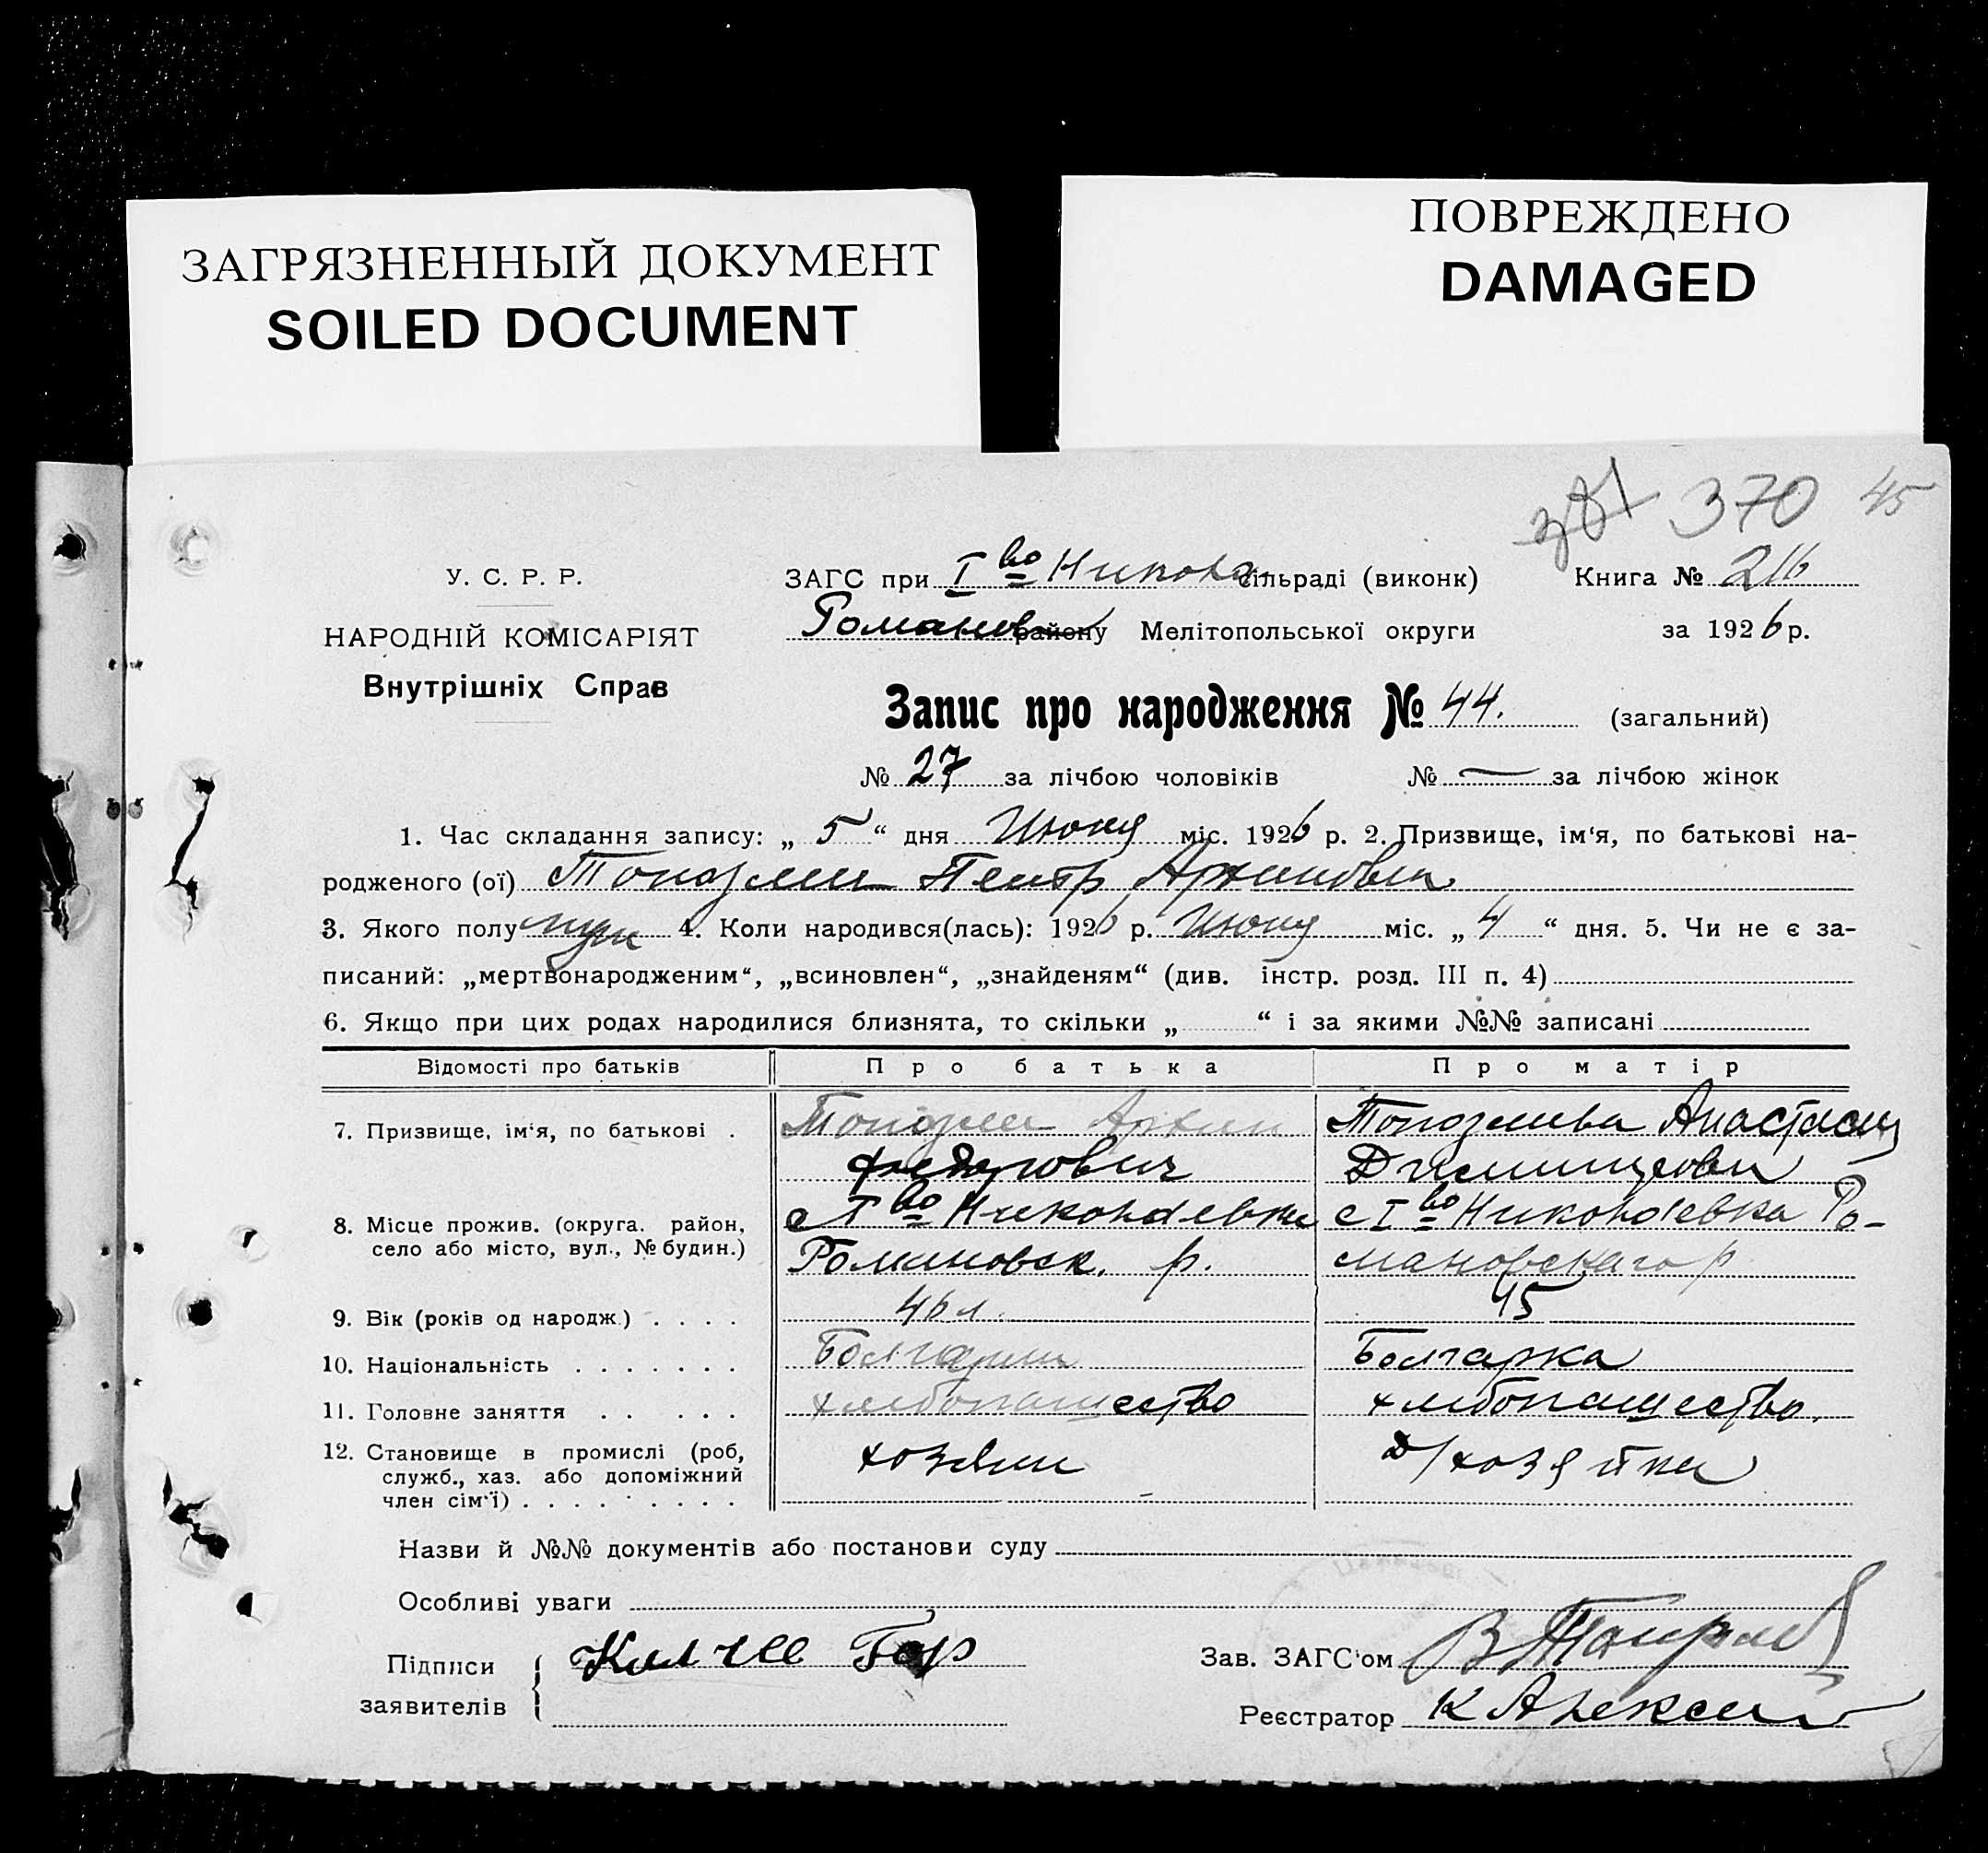 ЗАГРЯЗНЕННЫЙ ДОКУМЕНТ
SOILED DOCUMENT
ПОВРЕЖДЕНО
DAMAGED
370 45
У. С. Р. Р.
НАРОДНІЙ КОМІСАРІЯТ
Внутрішніх Справ
ЗАГС при I во Никола сільраді (виконк) Книга №
Романов району Мелітопольської округи за 1926 р.
Запис про народження № 44. (загальний)
№ 27 за лічбою чоловіків № — за лічбою жінок
1. Час складання запису: „ 5 “ дня Июня міс. 1926 р. 2. Призвище, ім‘я, по батькові на-
родженого (ої) Топозлин Петр Архипович
3. Якого полу муж 4. Коли народився(лась): 1926 р. Июня міс. „ 4 “ дня. 5. Чи не є за-
писаний: „мертвонародженим“, „всиновлен“, „знайденям“ (див. інстр. розд. III п. 4)
6. Якщо при цих родах народилися близнята, то скільки „ “ і за якими №№ записані
Відомості про батьків Про батька Про матір
7. Призвище, ім‘я, по батькові . Топозли Архип Топозлиева Анастасия
Федорович Дмитрови
8. Місце прожив. (округа. район, с I во Николаевки с I во Николаевка Ро-
село або місто, вул., № будин.) Романовск. р. мановскаго р
9. Вік (років од народж.) . . . . 46 л. 45
10. Національність . . . . . . . Болгарин Болгарка
11. Головне заняття . . . . . . хлебопашество хлебопашество.
12. Становище в промислі (роб, хозяин д/хозяйка
служб., хаз. або допоміжний
член сім‘ї) . . . . . . . . .
Назви й №№ документів або постанови суду
Особливі уваги
Підписи
заявителів
Зав. ЗАГС‘ом
Реєстратор К Алексеи